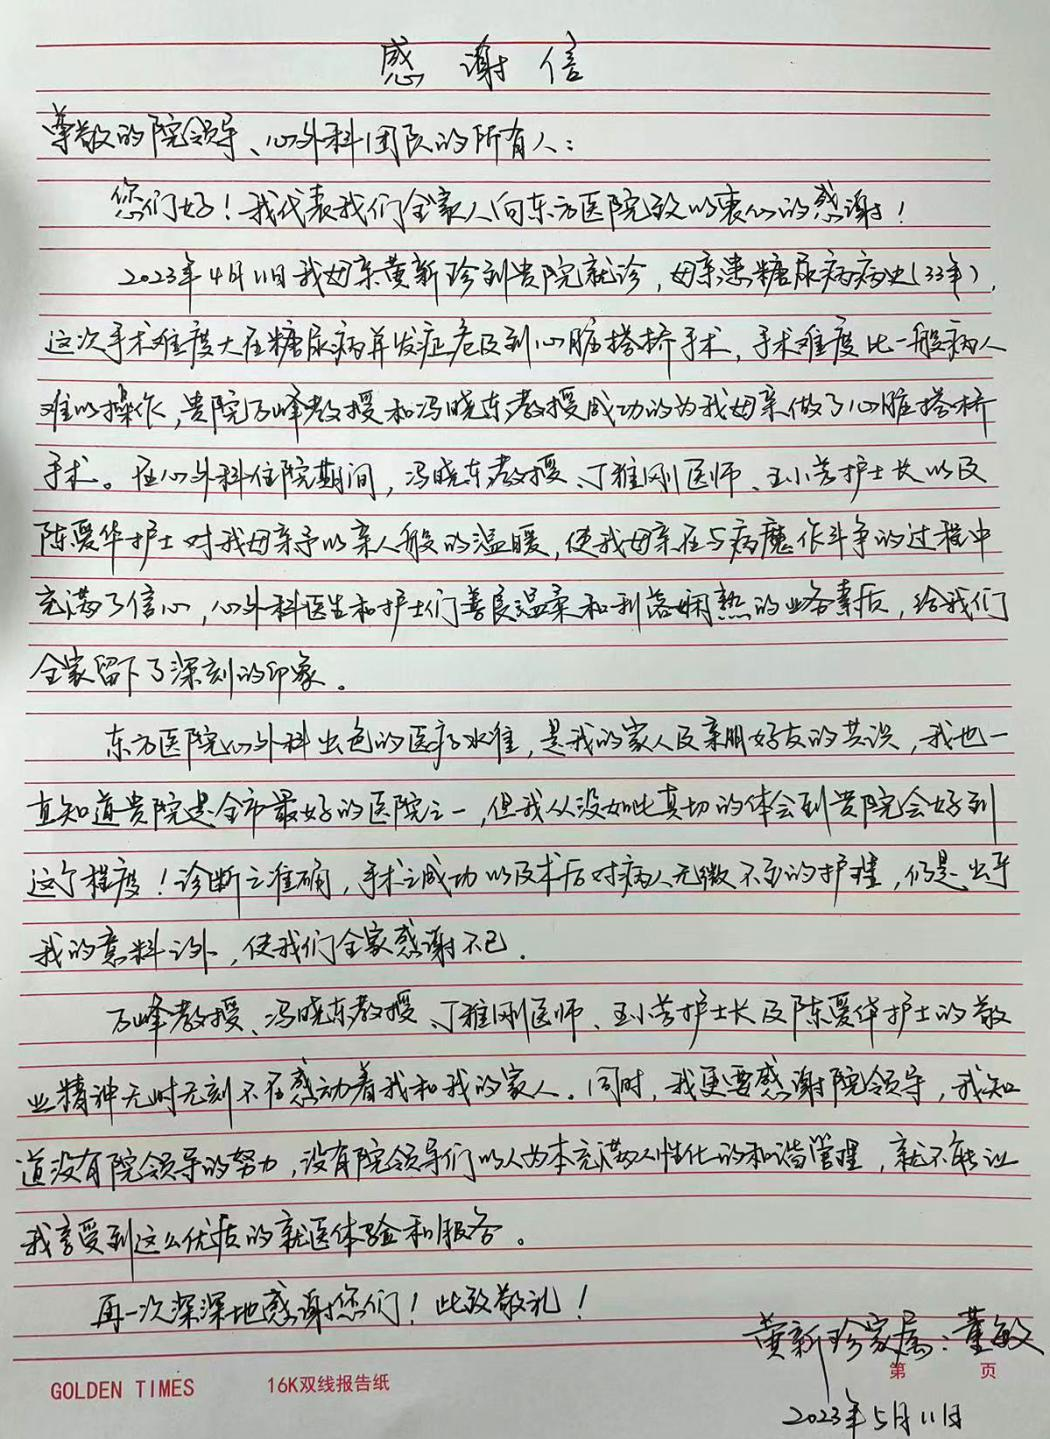 感谢信
尊敬的院领导、心外科团队的所有人：
您们好！我代表我们全家人向东方医院致以衷心的感谢！
2023年4月11日我母亲黄新珍到贵院就诊，母亲患糖尿病病史(33年)，
这次手术难度大在糖尿病并发症危及到心脏搭桥手术，手术难度比一般病人
难以操作，贵院万峰教授和冯晓东教授成功的为我母亲做了心脏搭桥
手术。在心外科住院期间，冯晓东教授、丁雅刚医师、王小芳护士长以及
陈爱华护士对我母亲予以亲人般的温暖，使我母亲在与病魔作斗争的过程中
充满了信心，心外科医生和护士们善良温柔和利落娴熟的业务素质，给我们
全家留下了深刻的印象。
东方医院心外科出色的医疗水准，是我的家人及亲朋好友的共识，我也一
直知道贵院是全市最好的医院之一，但我从没如此真切的体会到贵院会好到
这个程度！诊断之准确，手术之成功以及术后对病人无微不至的护理，仍是出乎
我的意料之外，使我们全家感谢不已。
万峰教授、冯晓东教授、丁雅刚医师、王小芳护士长及陈爱华护士的敬
业精神无时无刻不在感动着我和我的家人。同时，我更要感谢院领导，我知
道没有院领导的努力，没有院领导们以人为本充满人性化的和谐管理，就不能让
我享受到这么优质的就医体验和服务。
再一次深深地感谢您们！此致敬礼！
黄新珍家属：董敏
第 页
GOLDEN TIMES 16K双线报告纸
2023年5月11日